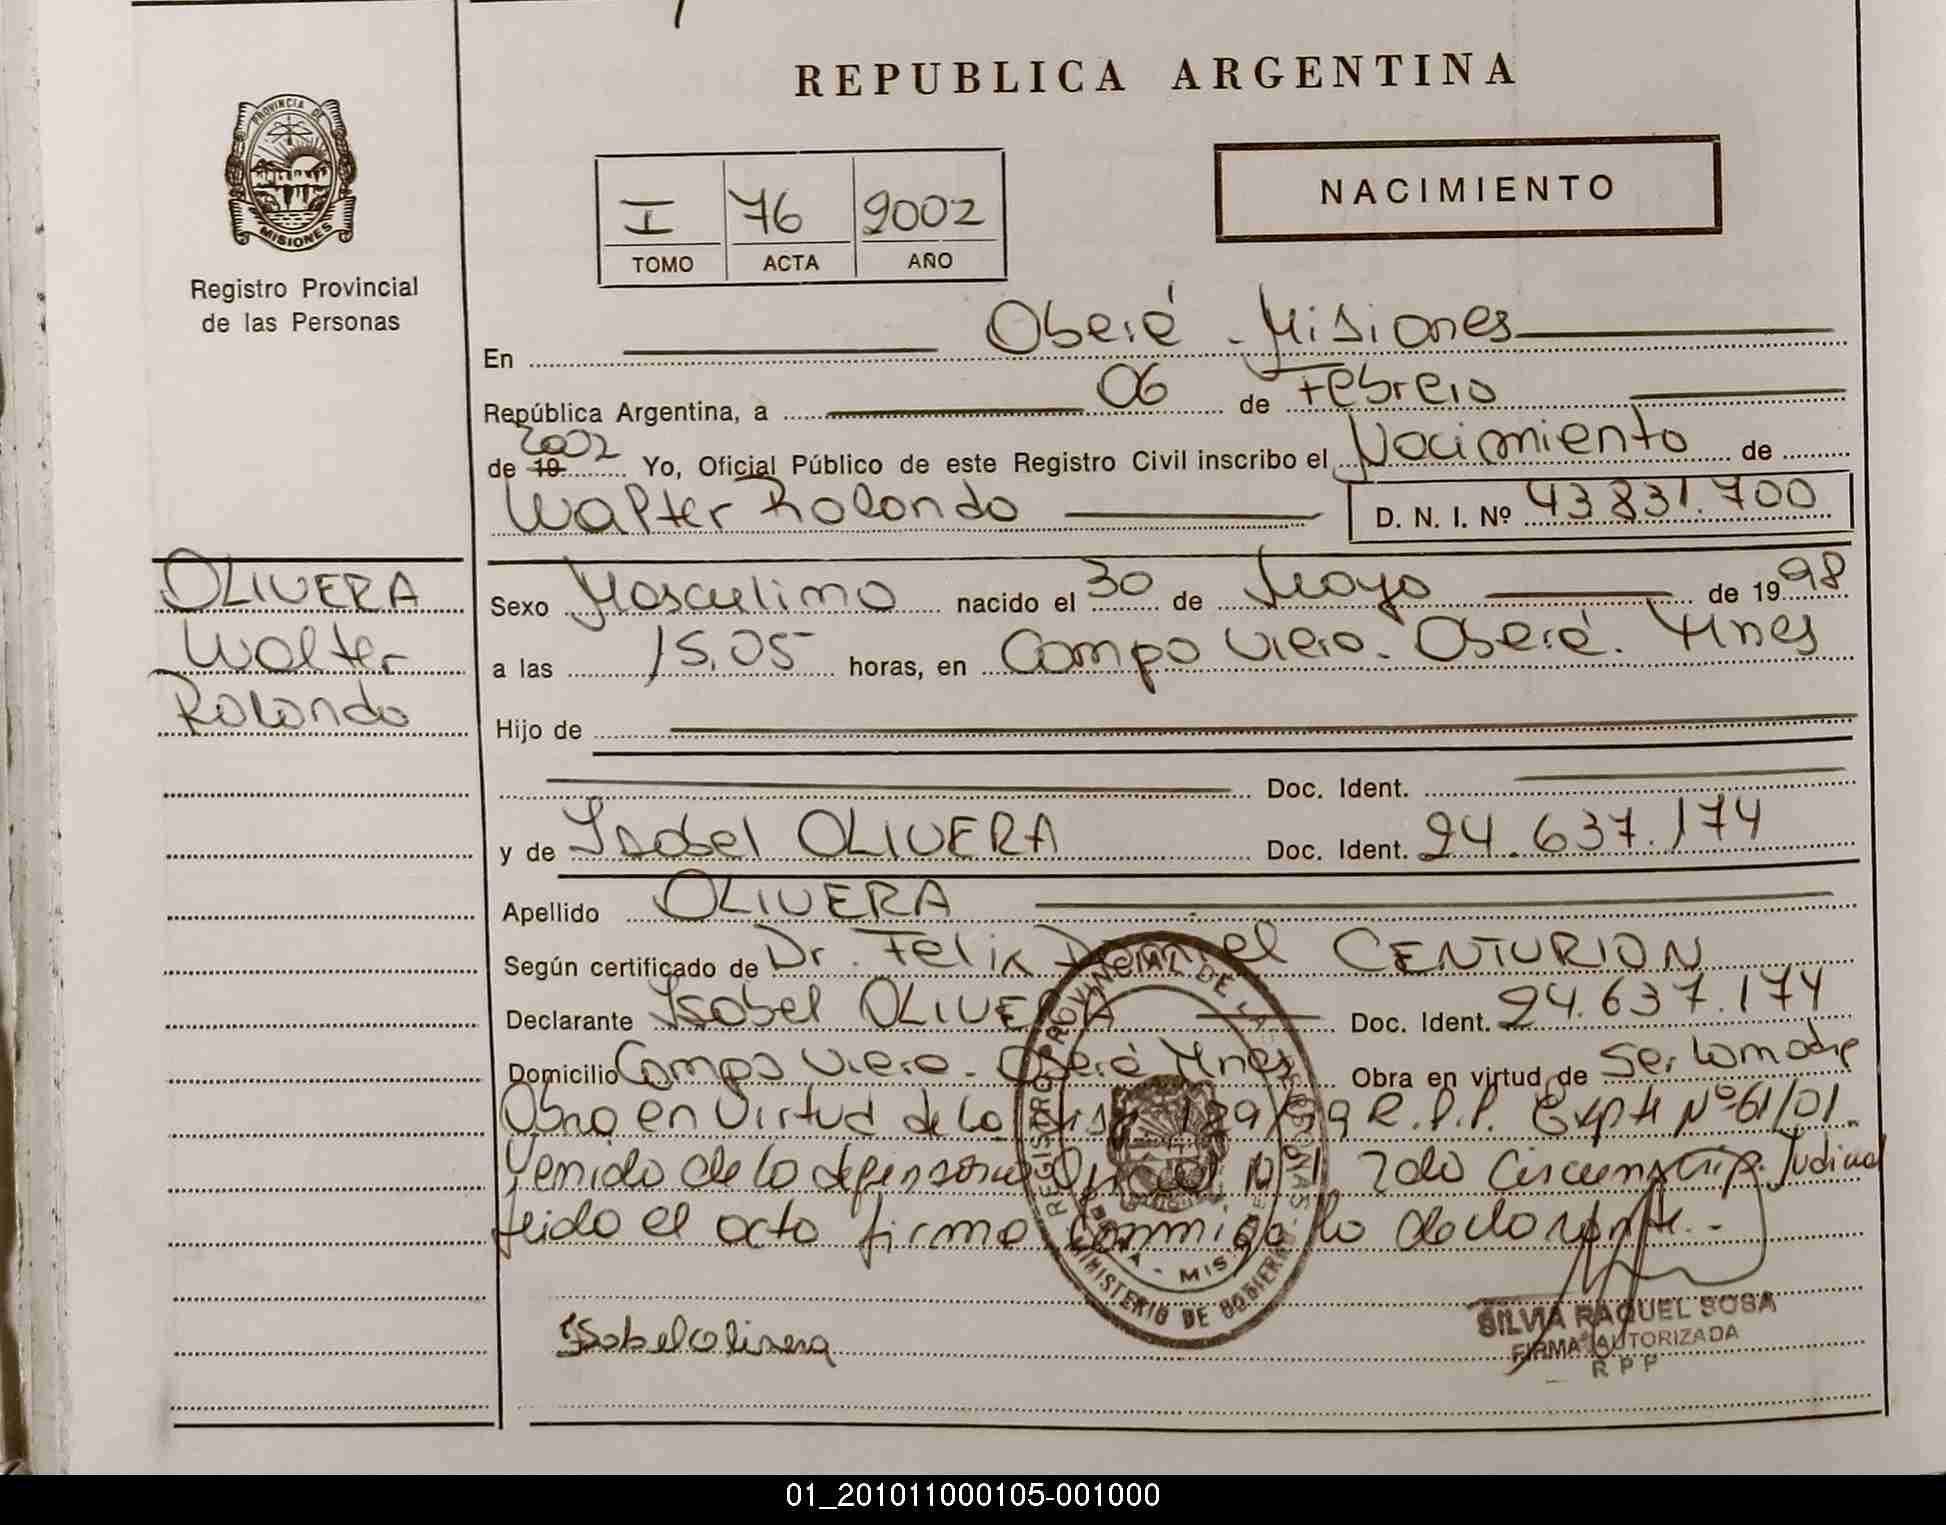 REPUBLICA ARGENTINA
PROVINCIA DE
MISIONES
Registro Provincial
de las Personas
I 76 2002
TOMO ACTA AÑO
NACIMIENTO
En Oberá - Misiones
República Argentina, a 06 de Febrero
de 19 2002 Yo, Oficial Público de este Registro Civil inscribo el Nacimiento de
Walter Rolando D. N. I. Nº 43.831.700
OLIVERA
Walter
Rolando
Sexo Masculino nacido el 30 de Mayo de 1998
a las 15,05 horas, en Campo Viera. Oberá. Mnes
Hijo de
Doc. Ident.
y de Isabel OLIVERA Doc. Ident. 24.637.174
Apellido OLIVERA
Según certificado de Dr. Felix Daniel CENTURION
Declarante Isabel OLIVERA Doc. Ident. 24.637.174
Domicilio Campo Viera - Oberá Mnes Obra en virtud de Ser la madre
Obra en Virtud de la 189/99 R.P.P. Expte Nº 61/01
Venido de la defensoria Oficial Nº 1 2da Circunscrip. Judicial
Leido el acto firma conmigo la declarante.-
REGISTRO PROVINCIAL DE LAS PERSONAS
MINISTERIO DE GOBIERNO
Isabel olivera
SILVIA RAQUEL SOSA
FIRMA AUTORIZADA
R P P
01_201011000105-001000